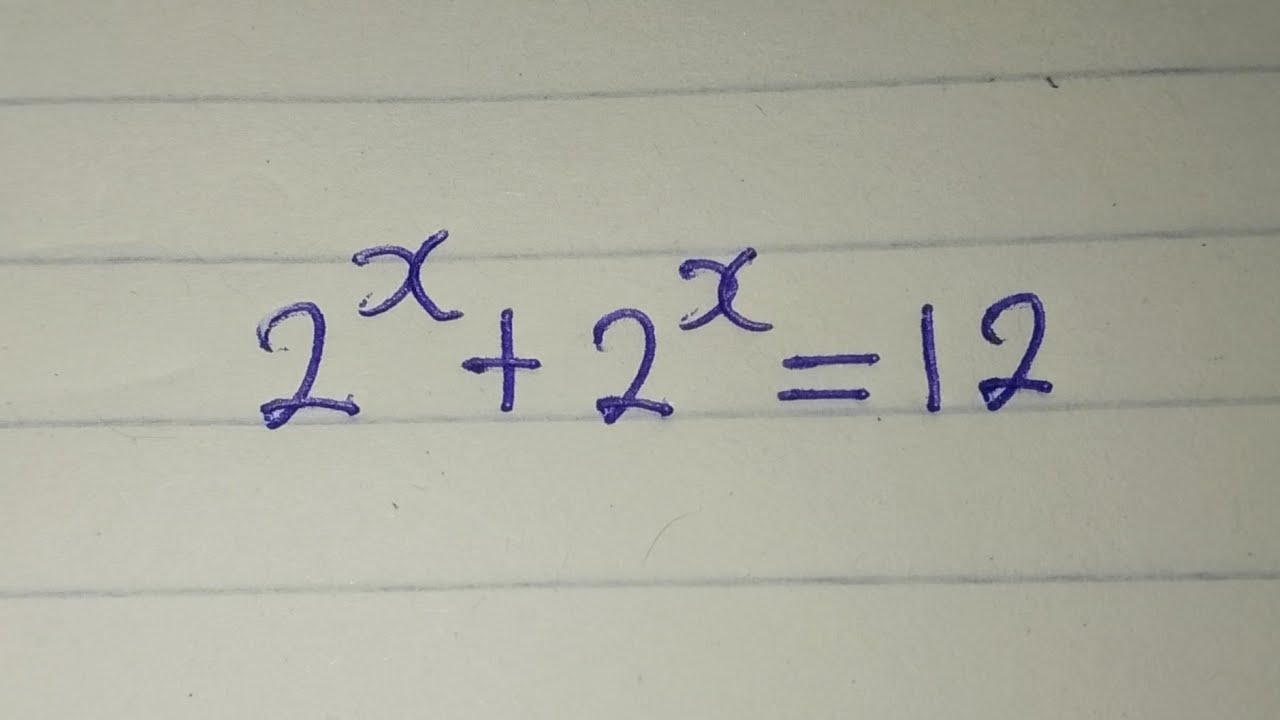 2ˣ + 2ˣ = 12